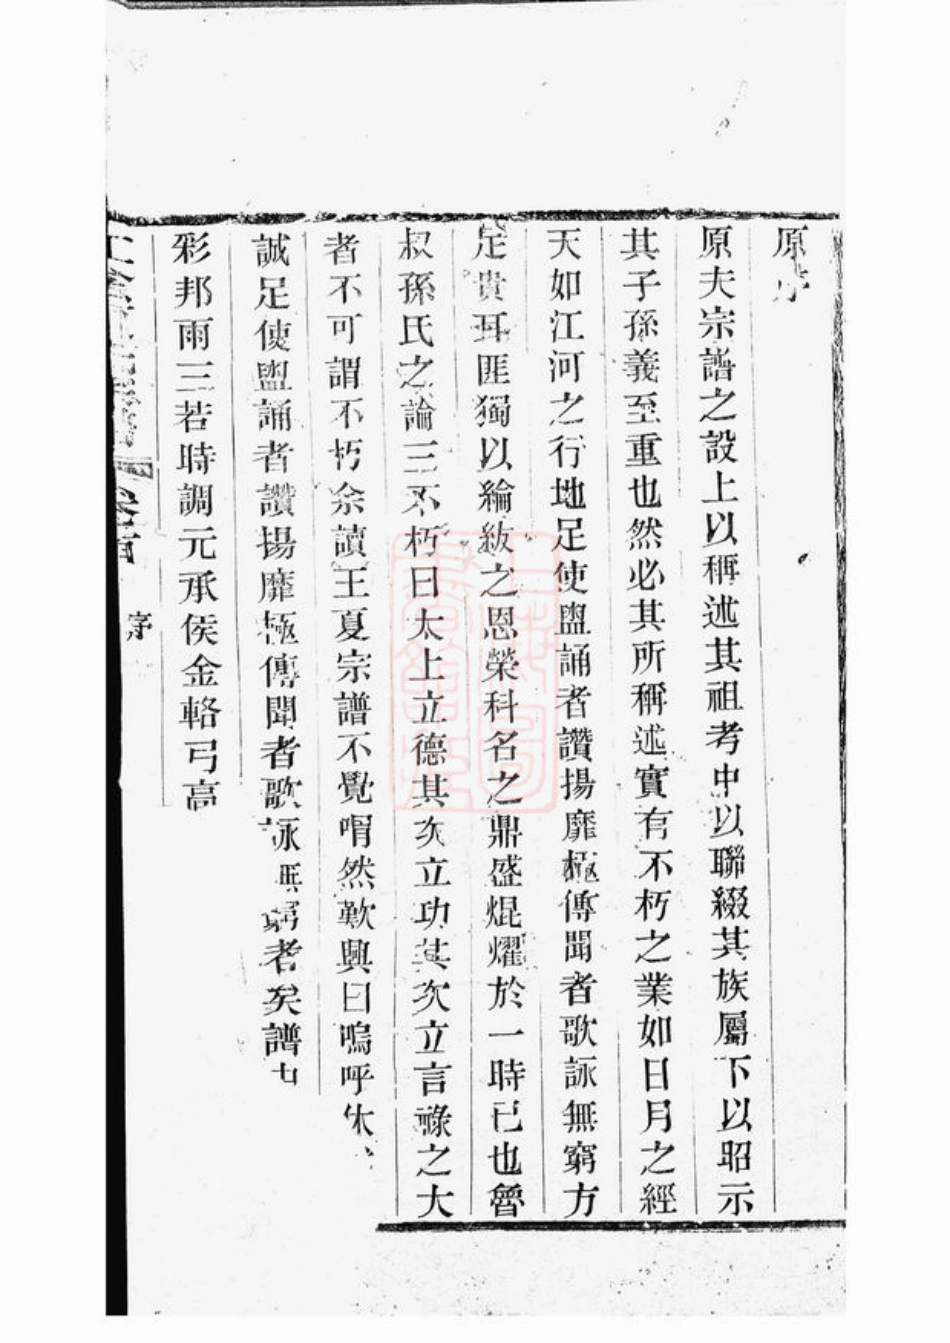 原序
原夫宗譜之設上以稱述其祖考中以聯綴其族屬下以昭示
其子孫義至重也然必其所稱述實有不朽之業如日月之經
天如江河之行地足使盥誦者讚揚靡極傳聞者歌詠無窮方
足貴耳匪獨以綸紱之恩榮科名之鼎盛焜耀於一時已也魯
叔孫氏之論三不朽曰太上立德其次立功其次立言祿之大
者不可謂不朽余讀王夏宗譜不覺喟然歎興曰嗚呼休
誠足使盥誦者讚揚靡極傳聞者歌詠無窮者矣譜
彩邦雨三若時調元承侯金輅弓高
卷首
序